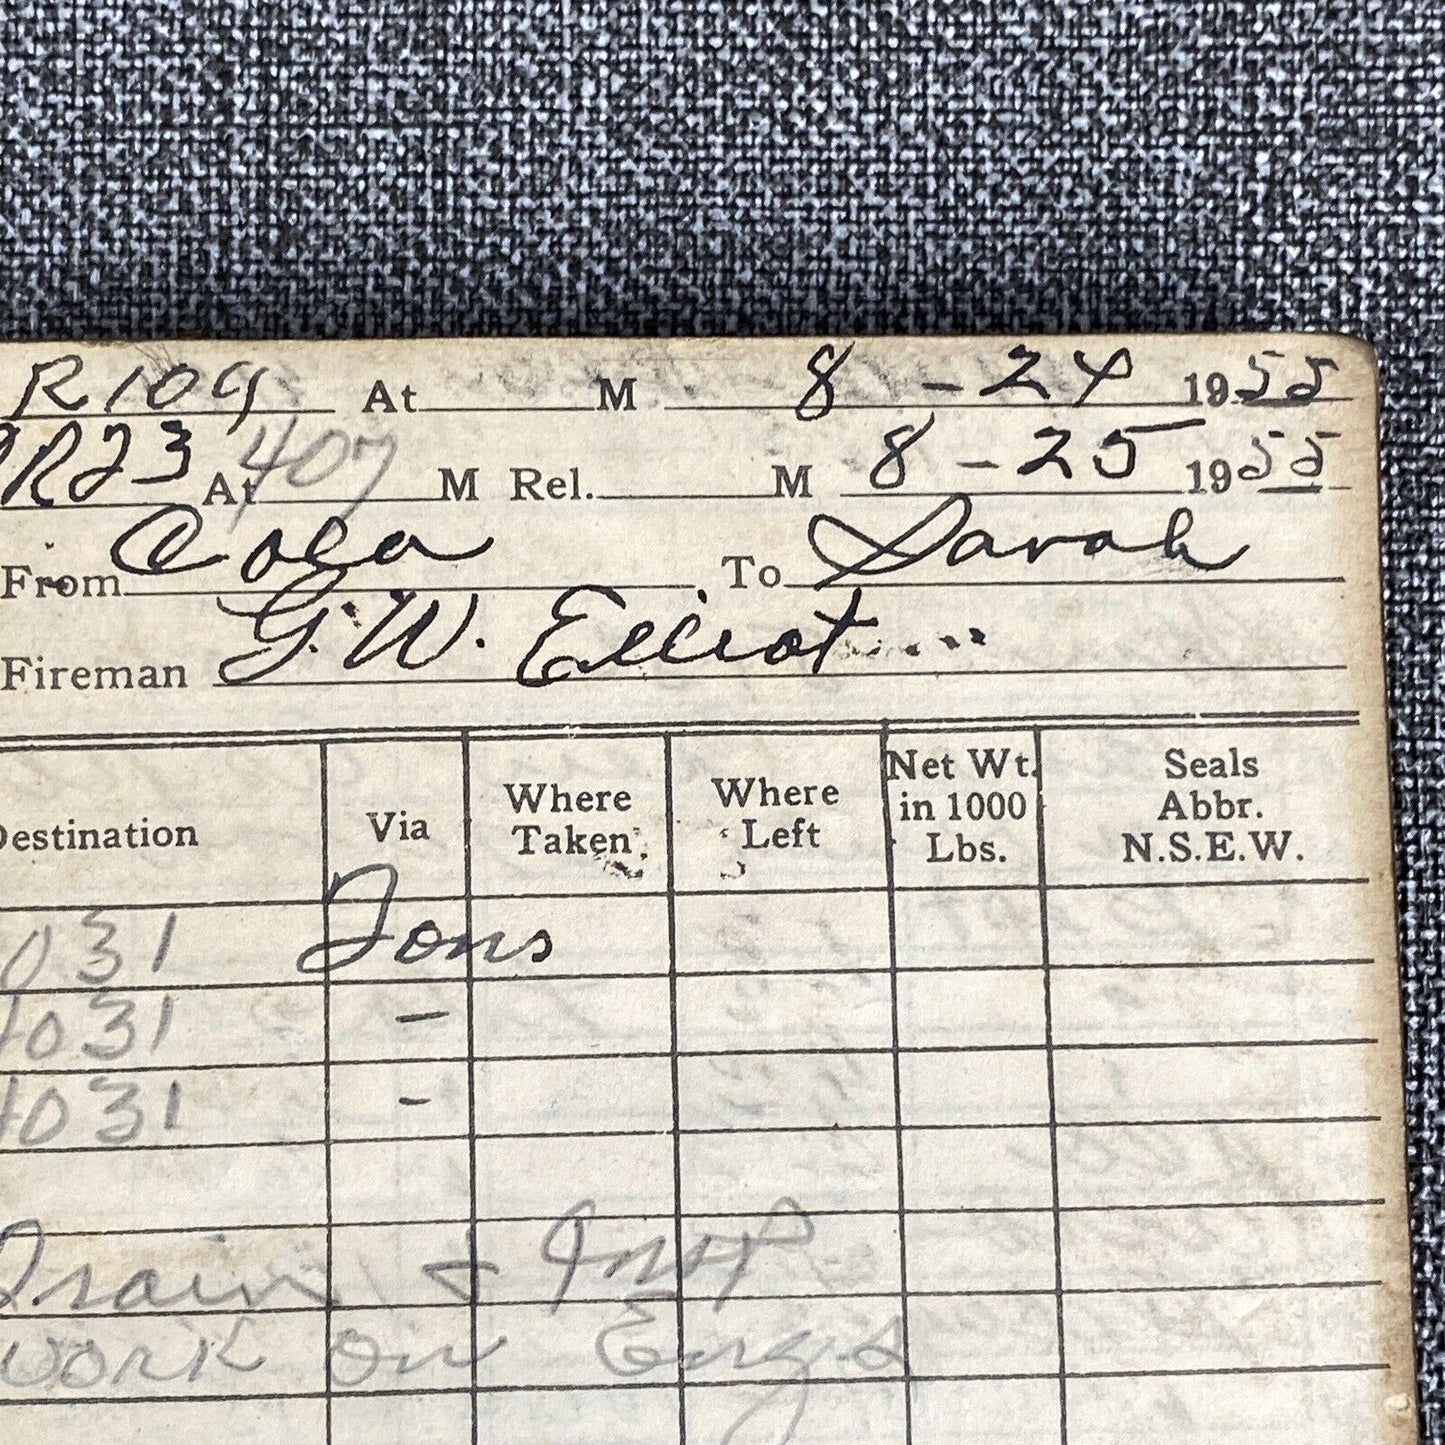 R109 At M 8-24 1955
R23 At 407 M Rel. M 8-25 1955
From Cola To Sarah
Fireman G.W. Elliot
Destination Via Where Taken Where Left Net Wt. in 1000 Lbs. Seals Abbr. N.S.E.W.
031 Tons
4031 -
4031 -
Train & Insp
work on Engs